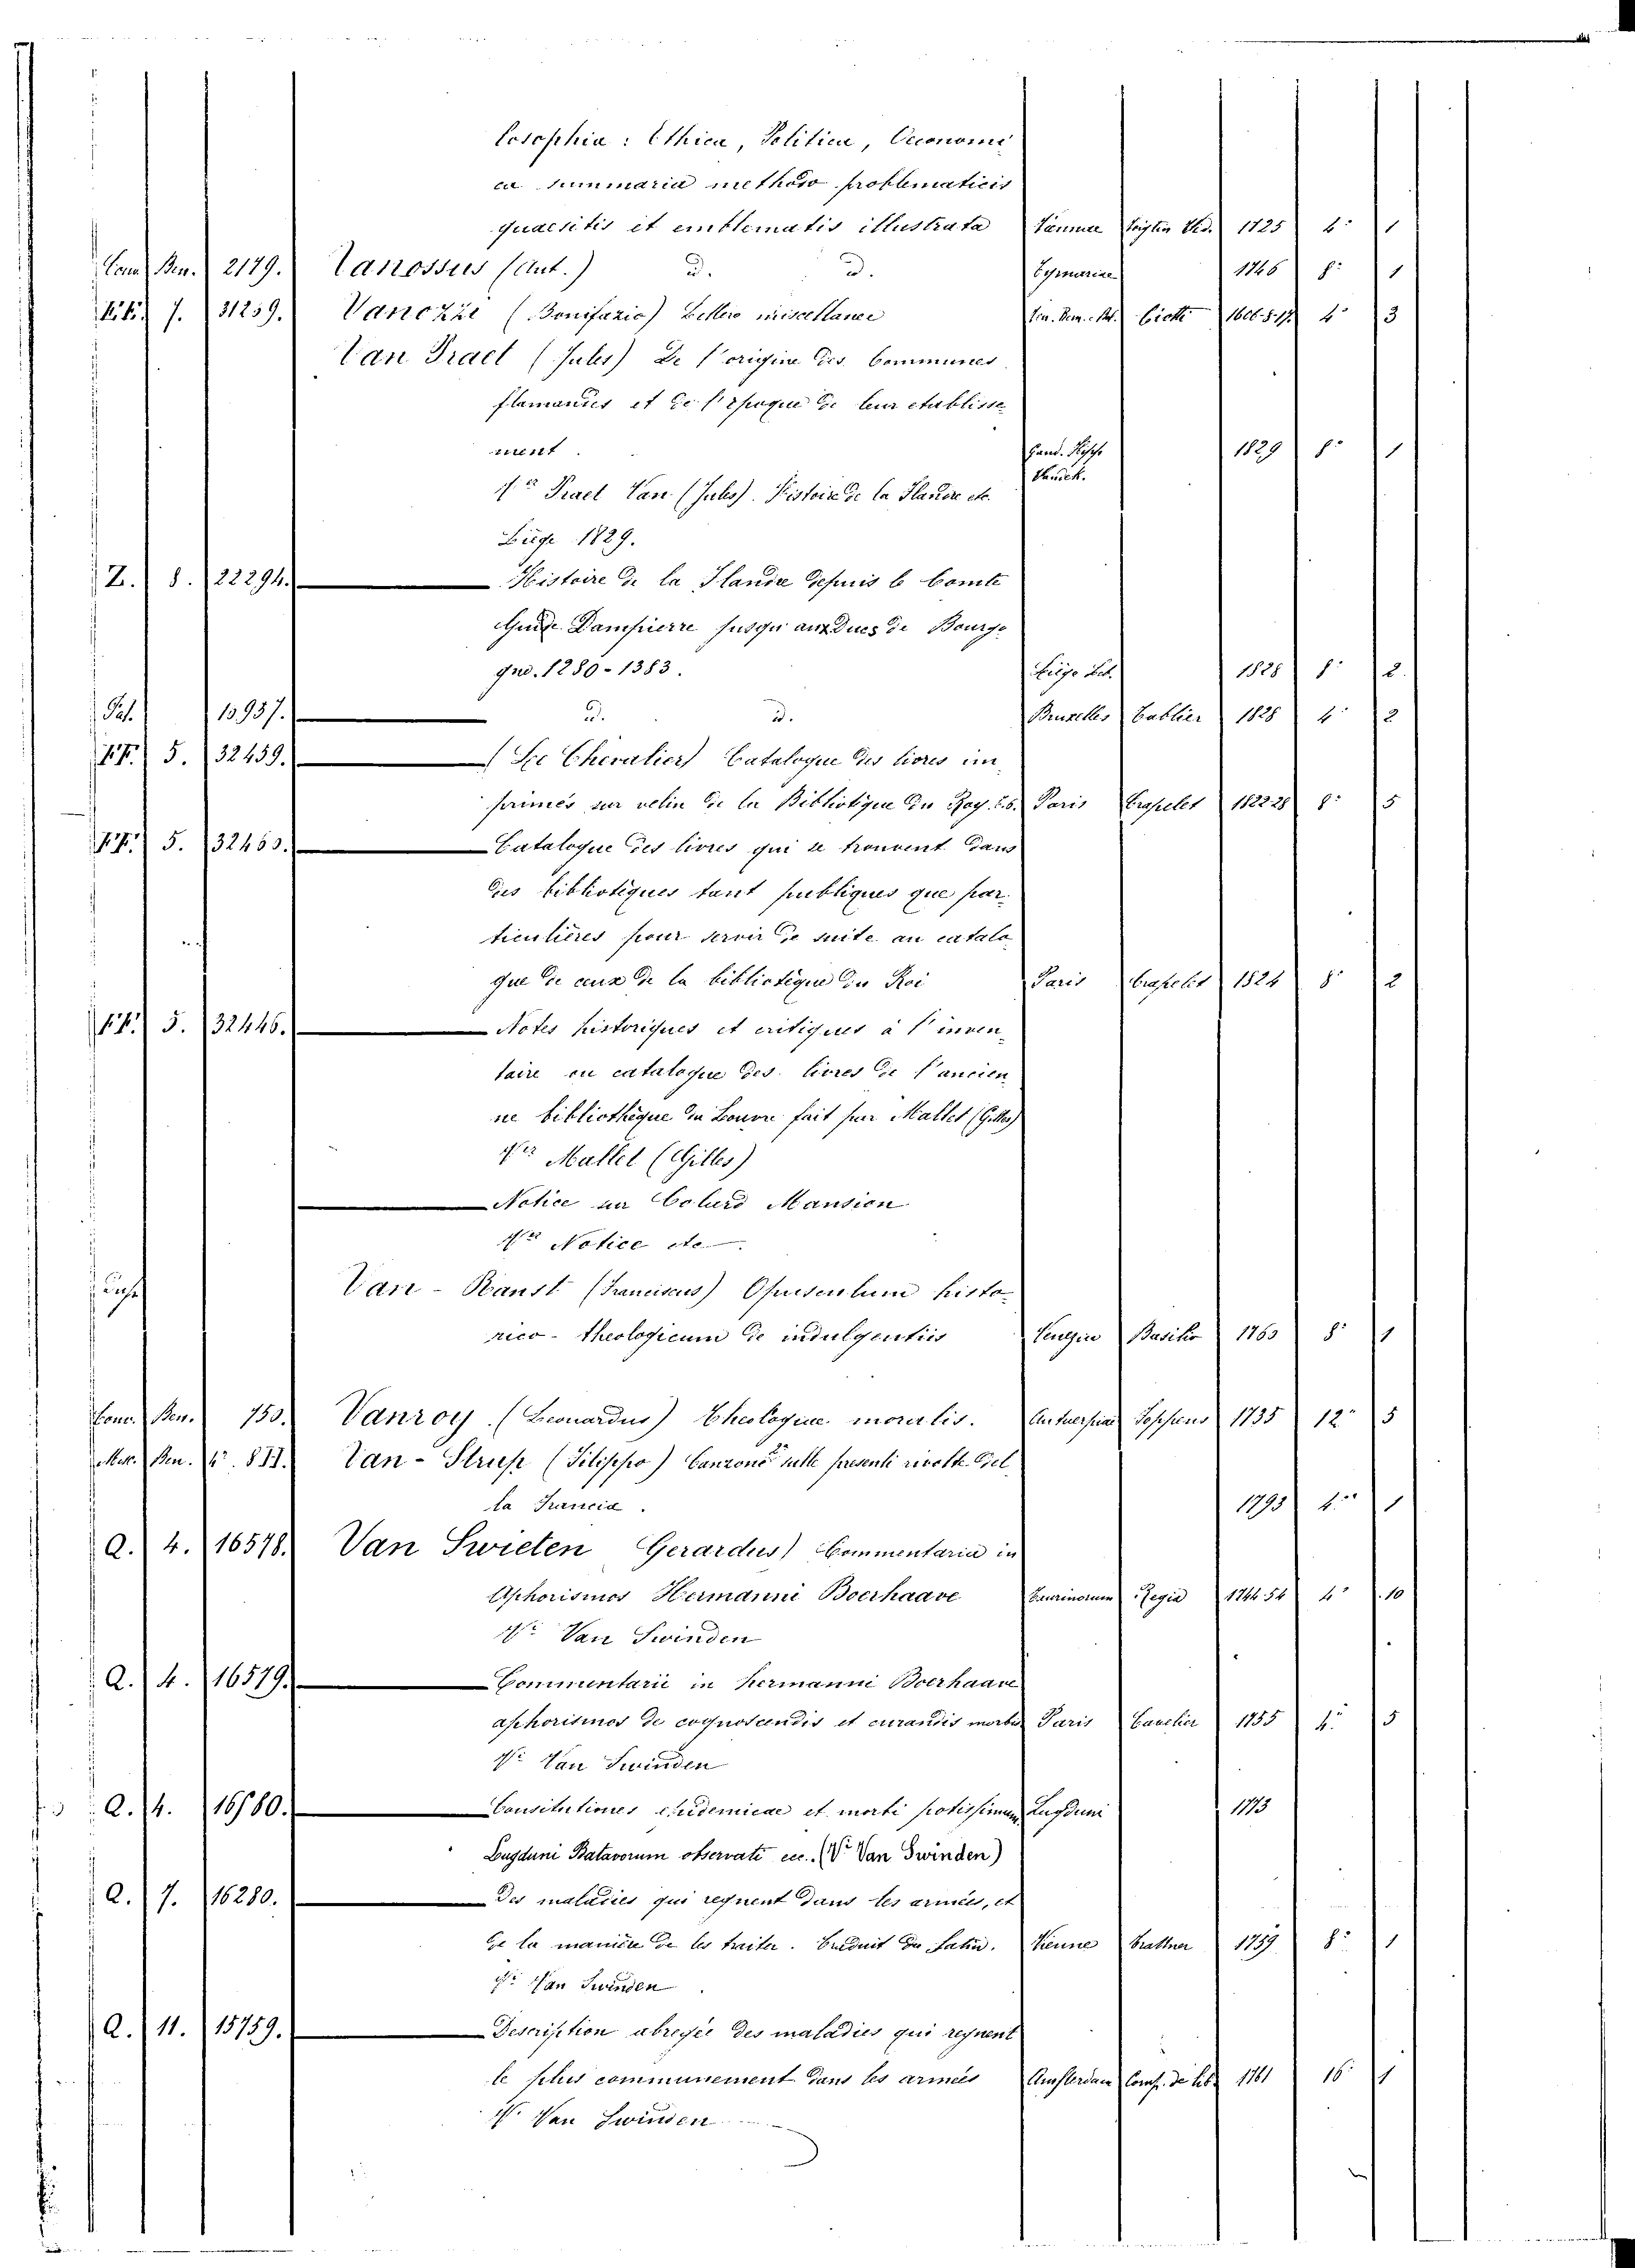 losophia: Ethica, Politica, Oeconomi
ca summaria methodo problematicis
quaesitis et emblematis illustrata 1725 4° 1
Conv. Ben. 2179. Vanossus (Ant.) d. d. 1746 8° 1
7. 31259. Vanozzi (Bonifazio) Lettere miscellanee Ven. Rom. Bol. Giotti 1606.8.17. 4° 3
Van Praet (Jules) De l'origine des Communes
flamandes et de l'époque de leur etablisse
ment. Gand. 1829 8° 1
Vr Praet Van (Jules). Histoire de la Flandre etc.
Liége 1829.
Z. 8. 22294. Histoire de la Flandre depuis le Comte
Gui de Dampierre jusqu'aux Ducs de Bourgo
gne. 1280-1383. Liége Leb. 1828 8° 2.
Pal. 15937. d. d. Bruxelles Tablier 1828 4° 2
5. 32459. (Le Chevalier) Catalogue des livres im
primés sur velin de la Bibliotique du Roy. t.6. Paris Crapelet 1822.28 8° 5
5. 32463. Catalogue des livres qui se trouvent dans
des bibliotiques tant publiques que par
ticulières pour servir de suite au catalo
gue de ceux de la bibliotique du Roi Paris Crapelet 1824 8° 2
5. 32446. Notes historiques et critiques à l'inven
taire ou catalogue des livres de l'ancien
ne bibliothèque du Louvre fait par Mallet (Gilles)
Vr Mallet (Gilles)
Notice sur Colard Mansion
Vr Notice etc.
Van-Ranst (Franciscus) Opusculum histo
rico-theologicum de indulgentiis Venezia Basilio 1763 8° 1
Conv. Ben. 750. Vanroy (Leonardus) Theologia moralis. Antuerpiae Joppens 1735 12° 5
Mat. Ben. 4°. 811. Van-Strup (Filippo) Canzone sulle presenti rivolte del
la Francia. 1793 4° 1
Q. 4. 16578. Van Swieten Gerardus) Commentaria in
Aphorismos Hermanni Boerhaave Taurinorum Regia 1744.54 4° 10
Vr Van Swinden
Q. 4. 16579. Commentarii in Hermanni Boerhaave
aphorismos de cognoscendis et curandis morbis Paris Cavelier 1755 4° 5
Vr Van Swinden
Q. 4. 16580. Consitutiones epidemicae et morbi potissimum Lugduni 1773
Lugduni Batavorum observati ec. (Vr Van Swinden)
Q. 7. 16280. Des maladies qui regnent dans les armées, et
de la manière de les traiter. Traduit du Latin. Vienne Trattner 1759 8° 1
Vr Van Swinden
Q. 11. 15759. Description abregée des maladies qui regnent
le plus communement dans les armées Amsterdam Comp. de lib. 1761 16° 1
Vr Van Swinden